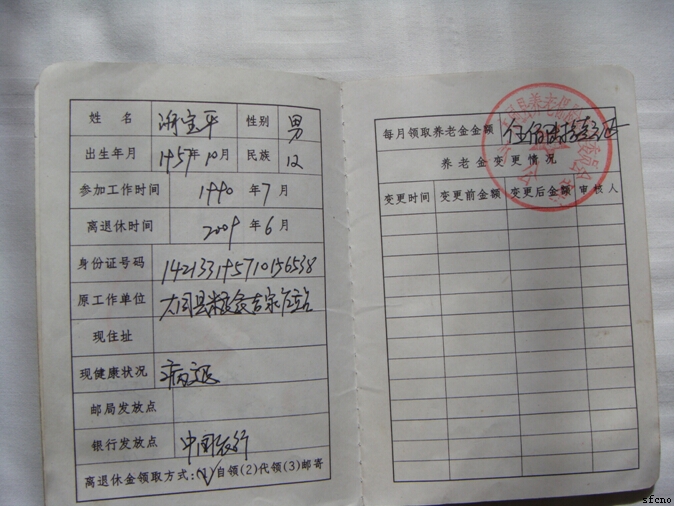 姓 名 谢宝平 性别 男
出生年月 1957年10月 民族 汉
参加工作时间 1990 年 7 月
离退休时间 2009 年 6 月
身份证号码 142133195710156538
原工作单位 大同县粮食
现住址
现健康状况 病退
邮局发放点
银行发放点 中国银行
离退休金领取方式:(1)自领(2)代领(3)邮寄
每月领取养老金金额 伍佰
养老金变更情况
变更时间 变更前金额 变更后金额 审核人
sfcno